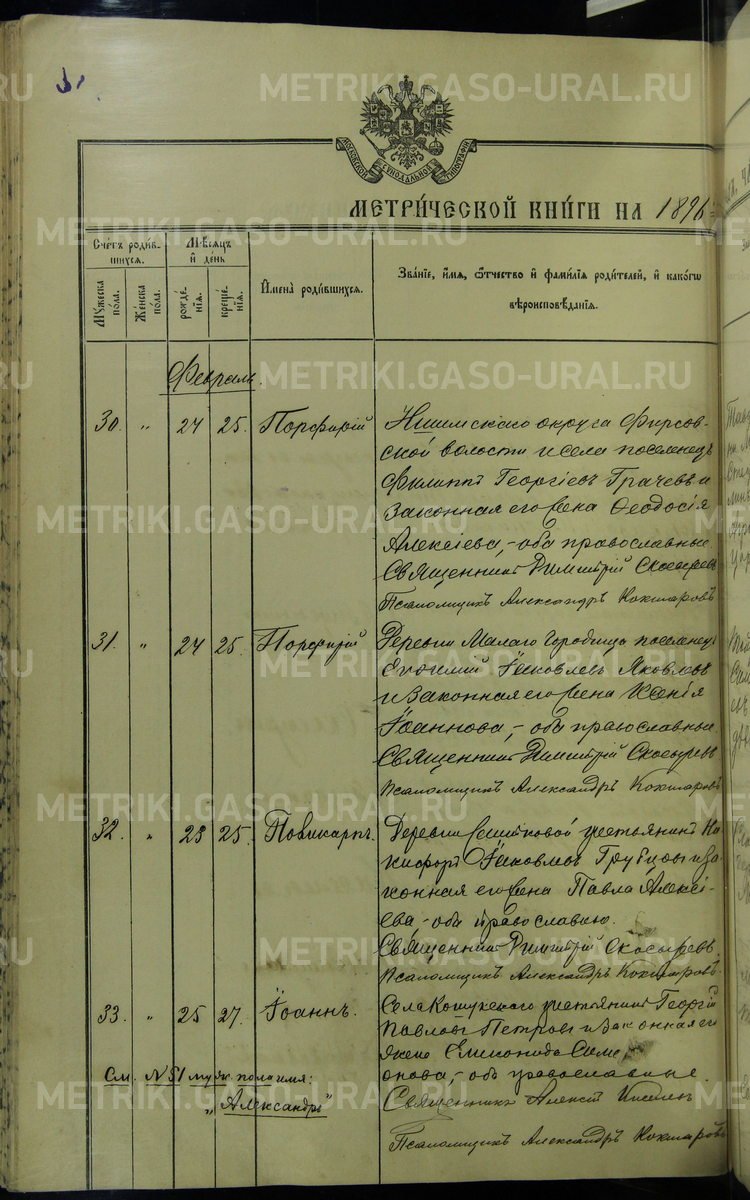 METRIKI.GASO-URAL.RU
МОСКОВСКОЙ СѴНОДАЛЬНОЙ ТИПОГРАФІИ
МЕТРИ́ЧЕСКОЙ КНИ́ГИ НА 1896
Сче́тъ роди́в-
шихся.
Мѣ́сяцъ
и҆ де́нь
Му́жеска по́ла.
Же́нска по́ла.
рожде́нїѧ.
креще́нїѧ.
И҆мена̀ роди́вшихся.
Зва́нїе, и҆́мѧ, ѻ҆́тчество и҆ фами́лїѧ роди́телей, и҆ како́гѡ
вѣроисповѣ́данїѧ.
Февраль.
30. „ 24 25. Порфирій
Ишимскаго округа Фирсов-
ской волости и села поселенецъ
Филиппъ Георгіевъ Грачевъ и
законная его жена Феодосія
Алексіева, - оба православные.
Священникъ Димитрій Скосыревъ
Псаломщикъ Александръ Кокшаровъ
31. „ 24 25. Порфирій
Деревни Малаго Городища поселенецъ
Евфимій Іаковлевъ Яковлевъ
и законная его жена Ксенія
Іоаннова, - оба православные.
Священникъ Димитрій Скосыревъ
Псаломщикъ Александръ Кокшаровъ
32. „ 23 25. Поликарпъ.
Деревни крестьянинъ Ни-
кифоръ Іаковлевъ и за-
конная его жена Павла Алексі-
ева, - оба православно.
Священникъ Димитрій Скосыревъ
Псаломщикъ Александръ Кокшаровъ
33. „ 25 27. Іоаннъ.
Села Кошукскаго крестьянинъ Георгій
Павловъ Петровъ и законная его
жена Елисонида Симе-
онова, - оба православные.
Священникъ Алексій Кисель
Псаломщикъ Александръ Кокшаровъ
См. №51 муж. пола имя:
„Александръ"